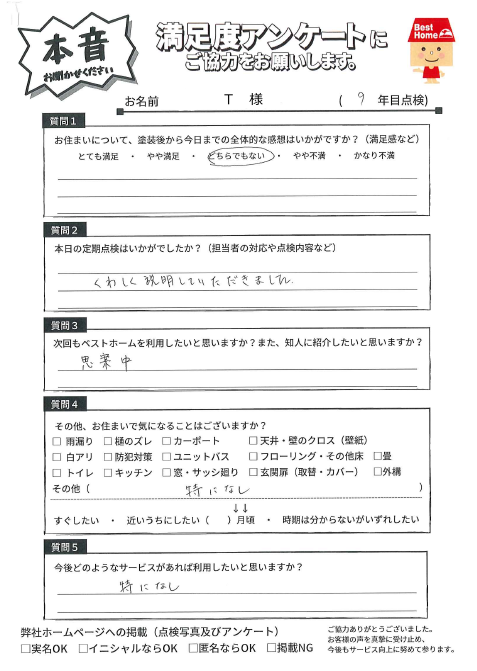 本音
お聞かせください
満足度アンケートに
ご協力をお願いします。
Best Home
お名前 T 様 ( 9 年目点検)
質問1
お住まいについて、塗装後から今日までの全体的な感想はいかがですか？（満足感など）
とても満足 ・ やや満足 ・ どちらでもない ・ やや不満 ・ かなり不満
質問2
本日の定期点検はいかがでしたか？（担当者の対応や点検内容など）
くわしく説明していただきました.
質問3
次回もベストホームを利用したいと思いますか？また、知人に紹介したいと思いますか？
思案中
質問4
その他、お住まいで気になることはございますか？
□ 雨漏り □ 樋のズレ □ カーポート □ 天井・壁のクロス（壁紙）
□ 白アリ □ 防犯対策 □ ユニットバス □ フローリング・その他床 □畳
□ トイレ □ キッチン □ 窓・サッシ廻り □ 玄関扉（取替・カバー） □外構
その他（ 特になし ）
↓↓
すぐしたい ・ 近いうちにしたい（ ）月頃 ・ 時期は分からないがいずれしたい
質問5
今後どのようなサービスがあれば利用したいと思いますか？
特になし
弊社ホームページへの掲載（点検写真及びアンケート）
□実名OK □イニシャルならOK □匿名ならOK □掲載NG
ご協力ありがとうございました。
お客様の声を真摯に受け止め、
今後もサービス向上に努めて参ります。